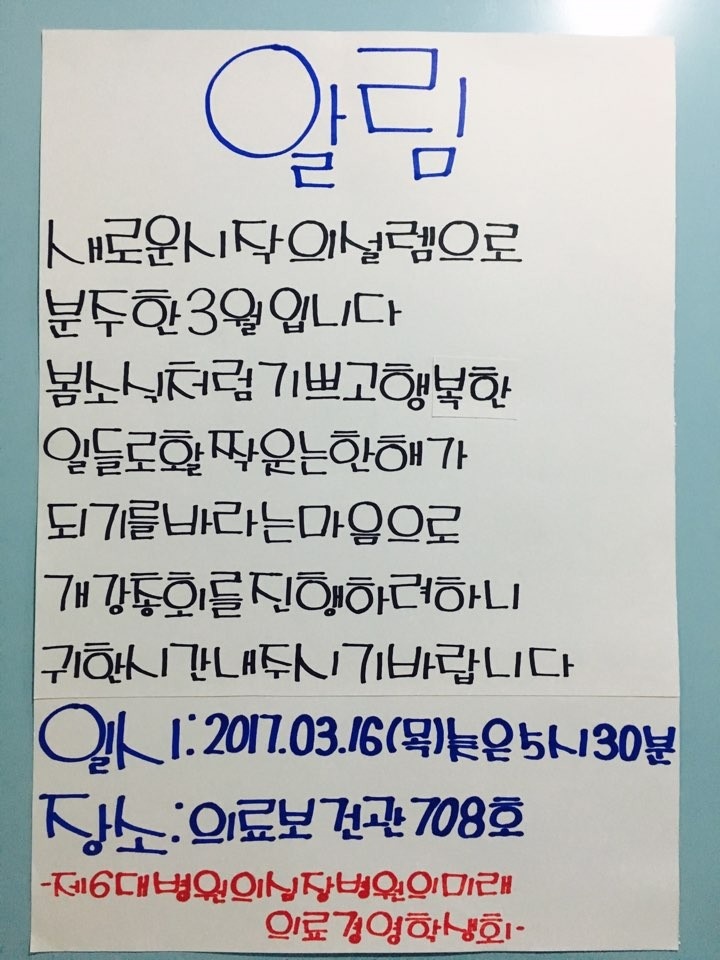 알림
새로운시작의설렘으로
분주한3월입니다
봄소식처럼기쁘고행복한
일들로활짝웃는한해가
되기를바라는마음으로
개강총회를진행하려하니
귀한시간내주시기바랍니다
일시:2017.03.16(목)늦은5시30분
장소:의료보건관708호
-제6대병원의심장병원의미래
의료경영학생회-